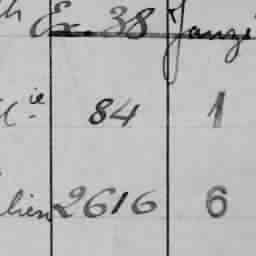 Ex. 38
ie 84 1
lien 2616 6